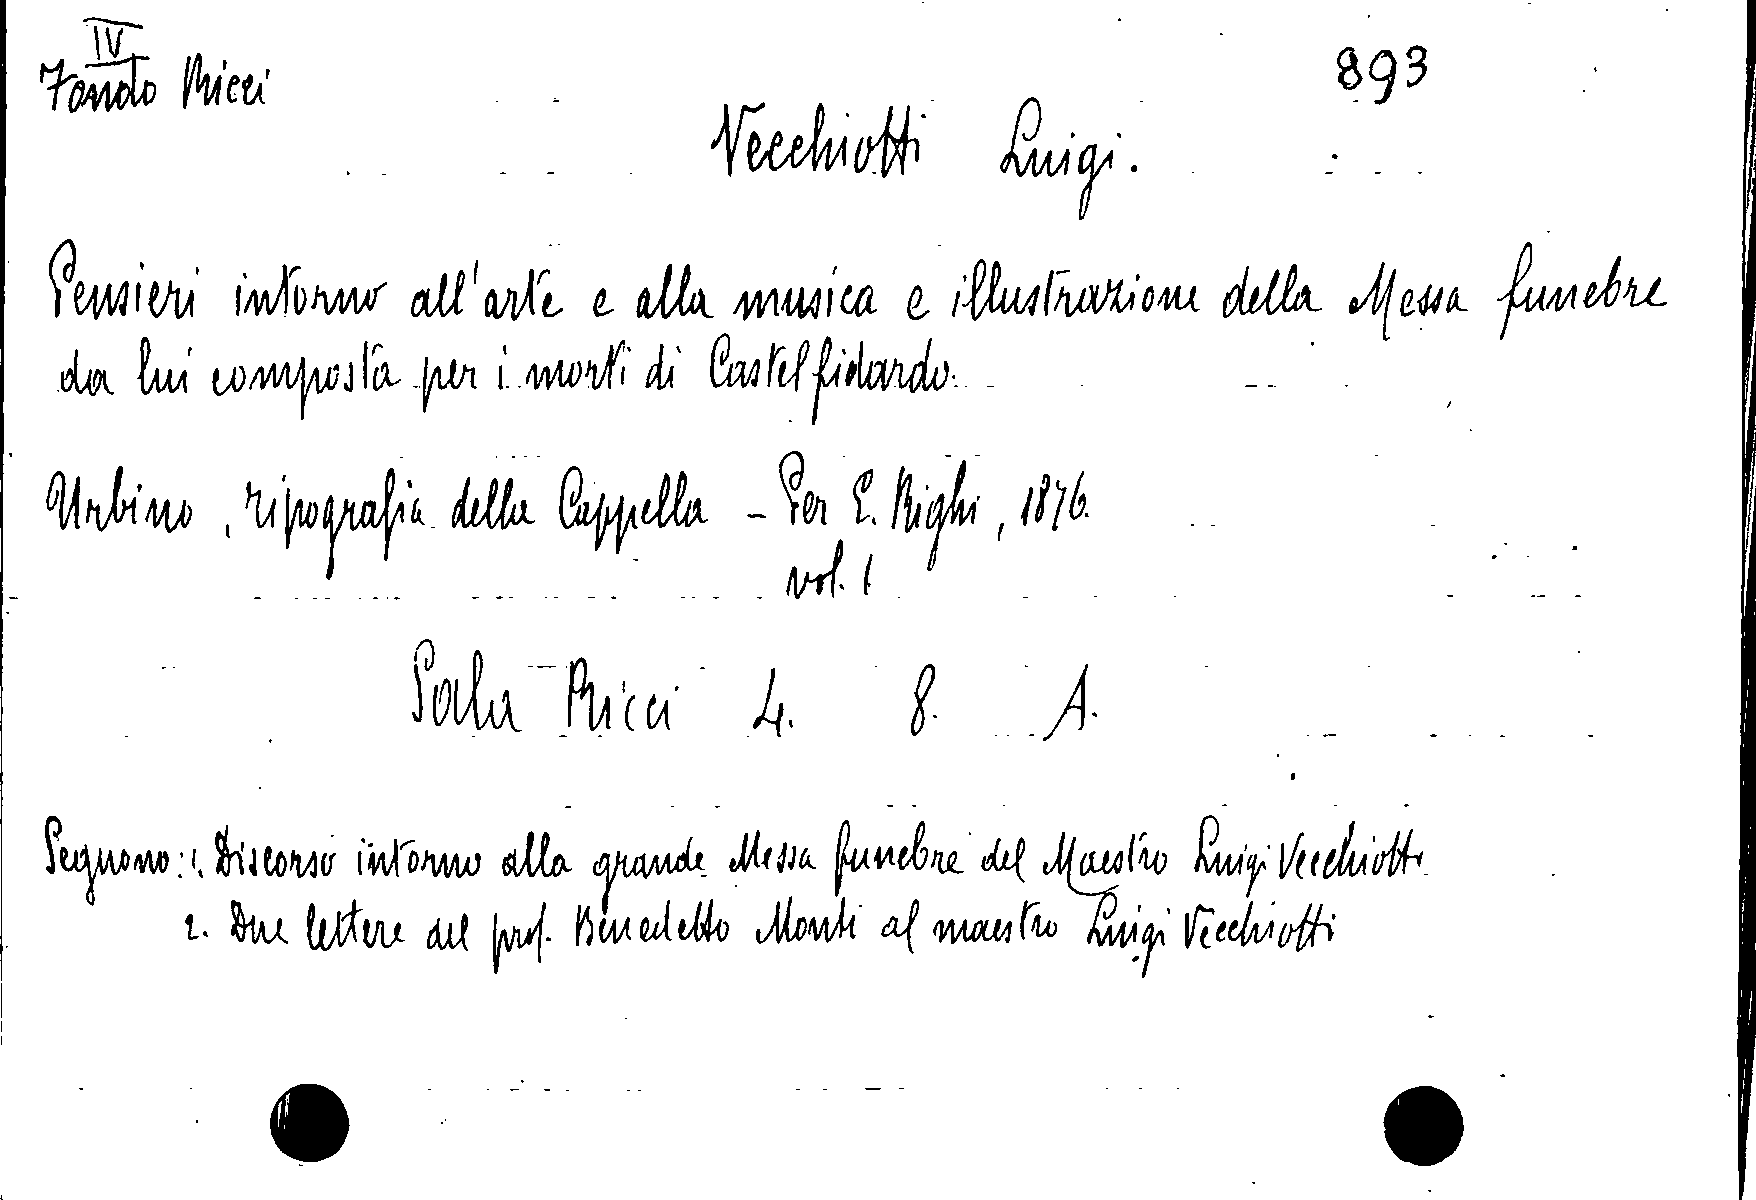 IV
Fondo Ricci
893
Vecchiotti Luigi.
Pensieri intorno all'arte e alla musica e illustrazione della Messa funebre
da lui composta per i morti di Castelfidardo.
Urbino, tipografia della Cappella - Per E. Righi, 1876.
vol. 1
Sala Ricci 4. 8. A.
Seguono: 1. Discorso intorno alla grande Messa funebre del Maestro Luigi Vecchiotti
2. Due lettere del prof. Benedetto Monti al maestro Luigi Vecchiotti